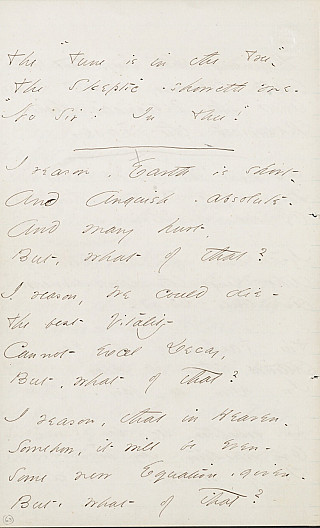 The "Tune is in the Tree",
The Skeptic - showeth me -
"No Sir! In Thee!"
I reason, Earth is short -
And Anguish - absolute -
And many hurt,
But, what of that?
I reason, we could die -
The best Vitality
Cannot excel Decay,
But, what of that?
I reason, that in Heaven -
Somehow, it will be even -
Some new Equation, given -
But, what of that?